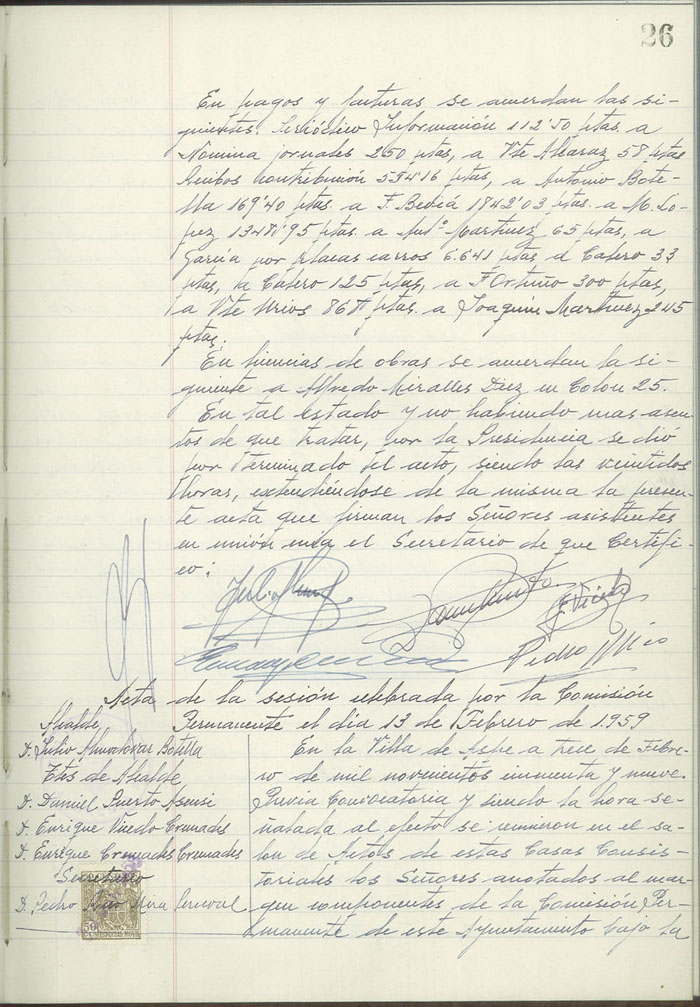 26
En pagos y facturas se acuerdan las si-
guientes. Periódico Información 112'50 ptas. a
Nómina jornales 250 ptas, a Vte Alcaraz 58 ptas
Recibos contribución 594'16 ptas, a Antonio Bote-
lla 169'40 ptas. a F. Bediá 1842'03 ptas. a M. Ló-
pez ptas. a Antº Martinez 65 ptas, a
García por placas carros 6.641 ptas a Calero 33
ptas, a Calero 125 ptas, a F Ortuño 300 ptas,
a Vte Urios ptas. a Joaquín Martinez 245
ptas.
En licencias de obras se acuerdan la si-
guiente a Alfredo Miralles Diez en Colon 25.
En tal estado y no habiendo mas asun-
tos de que tratar, por la Presidencia se dió
por terminado el acto, siendo las veintidos
horas, extendiéndose de la misma la presen-
te acta que firman los Señores asistentes
en unión mia el Secretario de que Certifi-
co:
Pedro
Acta de la sesión celebrada por la Comisión
Permanente el día 13 de Febrero de 1959
Alcalde
D. Julio Almodovar Botella
Ttes de Alcalde
D. Daniel Puerto Asensi
D. Enrique Vicedo Cremades
D. Enrique Cremades Cremades
Secretario
D. Pedro Mira
50
ESPECIAL MOVIL
En la Villa de Aspe a trece de Febre-
ro de mil novecientos cincuenta y nueve.
Previa Convocatoria y siendo la hora se-
ñalada al efecto se reunieron en el sa-
lon de Actos de estas Casas Consis-
toriales los Señores anotados al mar-
gen componentes de la Comisión Per-
manente de este Ayuntamiento bajo la